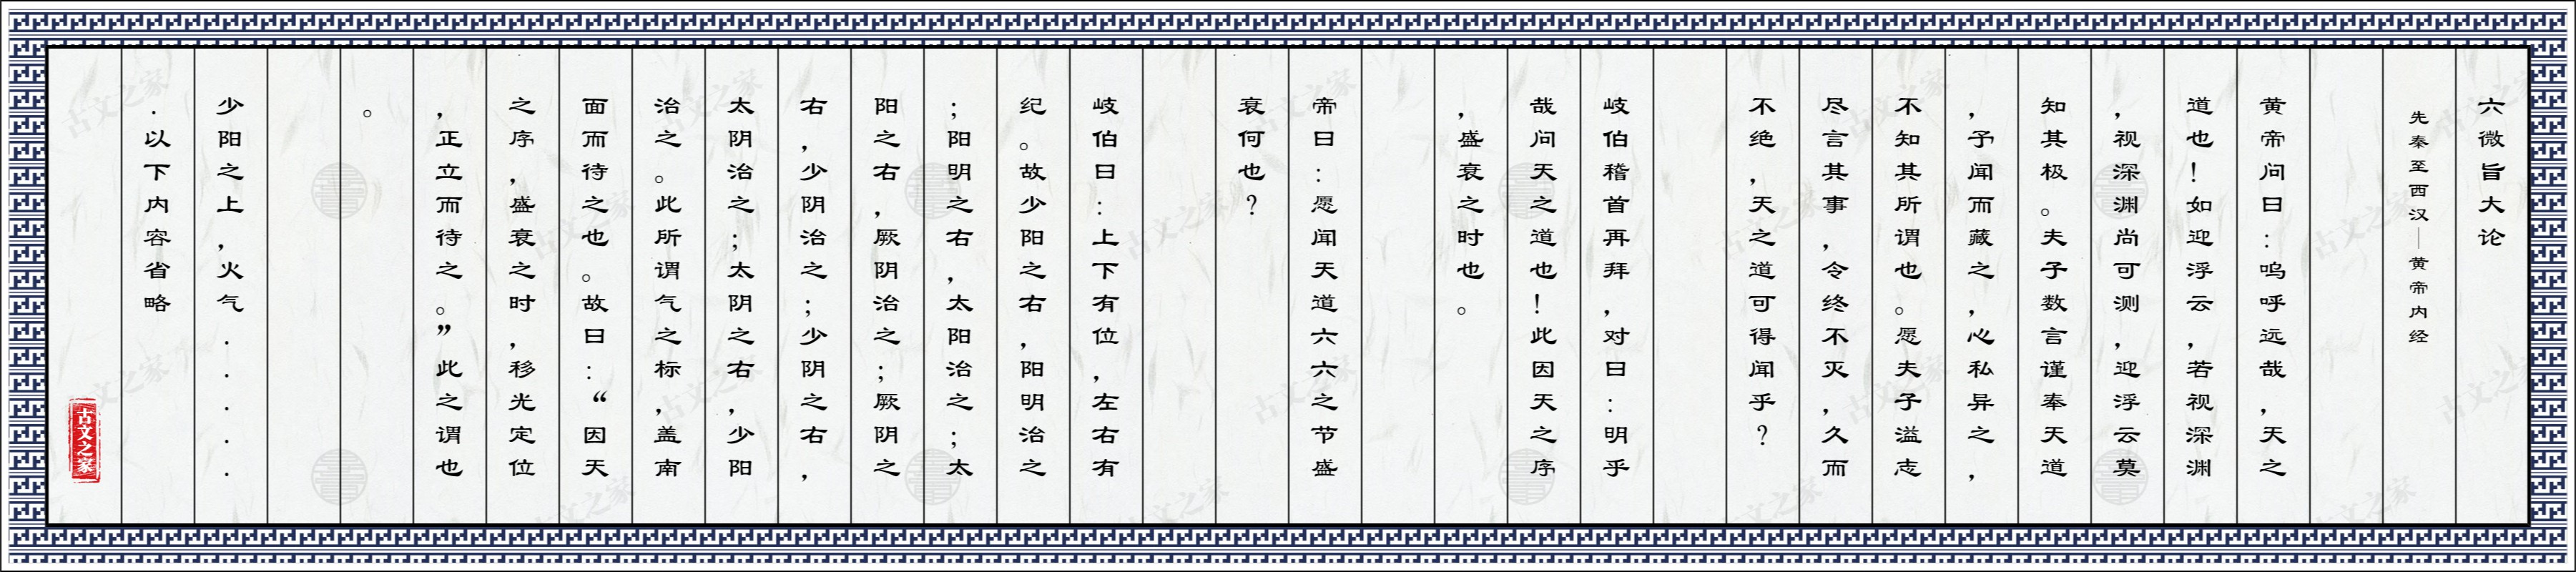 六微旨大论
先秦至西汉—黄帝内经
黄帝问曰：呜呼远哉，天之
道也！如迎浮云，若视深渊
，视深渊尚可测，迎浮云莫
知其极。夫子数言谨奉天道
，予闻而藏之，心私异之，
不知其所谓也。愿夫子溢志
尽言其事，令终不灭，久而
不绝，天之道可得闻乎？
岐伯稽首再拜，对曰：明乎
哉问天之道也！此因天之序
，盛衰之时也。
帝曰：愿闻天道六六之节盛
衰何也？
岐伯曰：上下有位，左右有
纪。故少阳之右，阳明治之
；阳明之右，太阳治之；太
阳之右，厥阴治之；厥阴之
右，少阴治之；少阴之右，
太阴治之；太阴之右，少阳
治之。此所谓气之标，盖南
面而待之也。故曰：“因天
之序，盛衰之时，移光定位
，正立而待之。”此之谓也
。
少阳之上，火气.....
.以下内容省略
古文之家